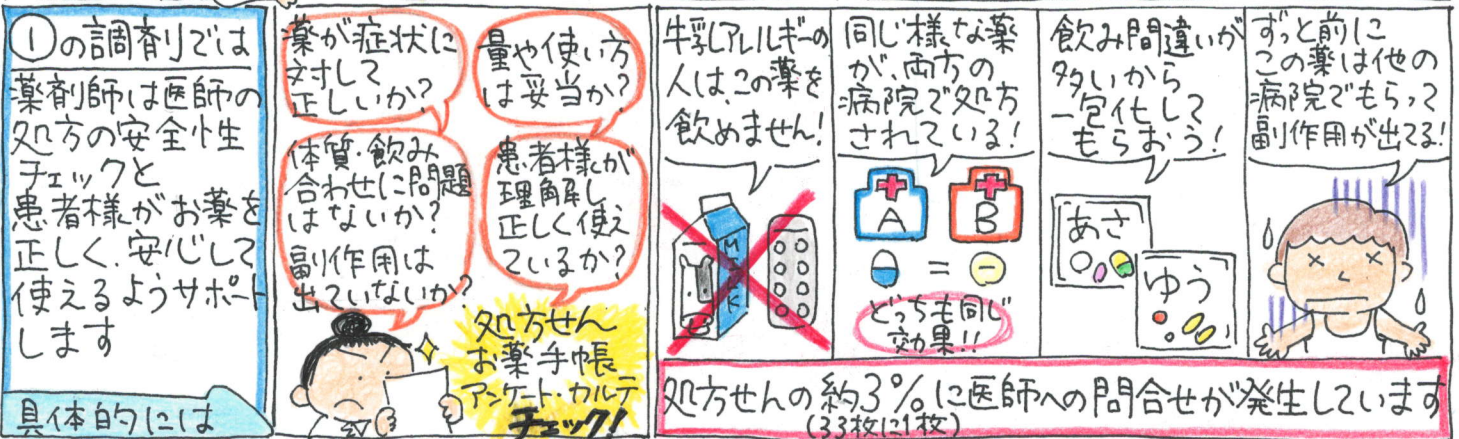 ①の調剤では
薬剤師は医師の
処方の安全性
チェックと
患者様がお薬を
正しく、安心して
使えるようサポート
します
具体的には
薬が症状に
対して
正しいか?
量や使い方
は妥当か?
体質・飲み
合わせに問題
はないか?
副作用は
出ていないか?
患者様が
理解し
正しく使え
ているか?
処方せん
お薬手帳
アンケート・カルテ
チェック!
牛乳アレルギーの
人は、この薬を
飲めません!
MILK
同じ様な薬
が、両方の
病院で処方
されている!
A
B
=
どっちも同じ
効果!!
飲み間違いが
多いから
一包化して
もらおう!
あさ
ゆう
ずっと前に
この薬は他の
病院でもらって
副作用が出てる!
処方せんの約3%に医師への問合せが発生しています
(33枚に1枚)